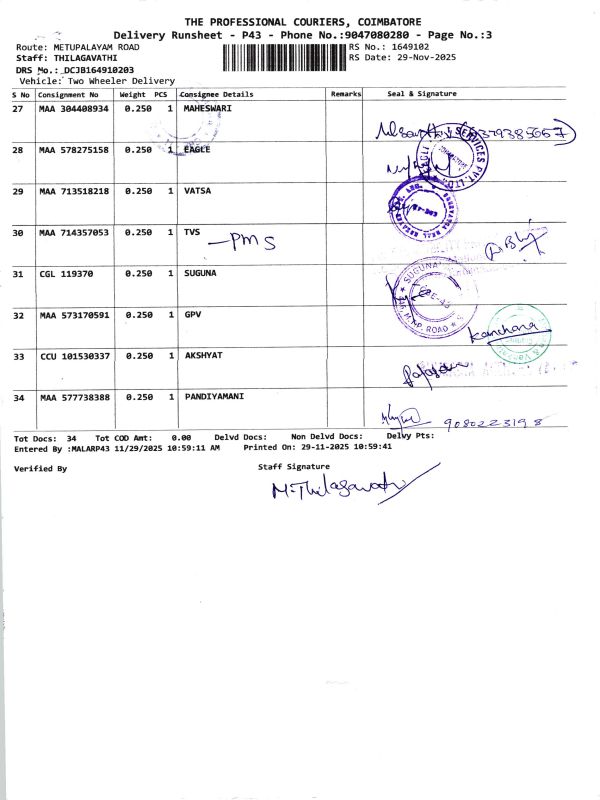 THE PROFESSIONAL COURIERS, COIMBATORE
Delivery Runsheet - P43 - Phone No.:9047080280 - Page No.:3
Route: METUPALAYAM ROAD RS No.: 1649102
Staff: THILAGAVATHI RS Date: 29-Nov-2025
DRS No.: DCJB164910203
Vehicle: Two Wheeler Delivery
S No Consignment No Weight PCS Consignee Details Remarks Seal & Signature
27 MAA 304408934 0.250 1 MAHESWARI
28 MAA 578275158 0.250 1 EAGLE
29 MAA 713518218 0.250 1 VATSA
30 MAA 714357053 0.250 1 TVS
-PMS
31 CGL 119370 0.250 1 SUGUNA
SUGUNA
M.T.P. ROAD
32 MAA 573170591 0.250 1 GPV
Kanchana
33 CCU 101530337 0.250 1 AKSHYAT
34 MAA 577738388 0.250 1 PANDIYAMANI
9080223198
Tot Docs: 34 Tot COD Amt: 0.00 Delvd Docs: Non Delvd Docs: Delvy Pts:
Entered By :MALARP43 11/29/2025 10:59:11 AM Printed On: 29-11-2025 10:59:41
Verified By Staff Signature
M.Thilagavathi